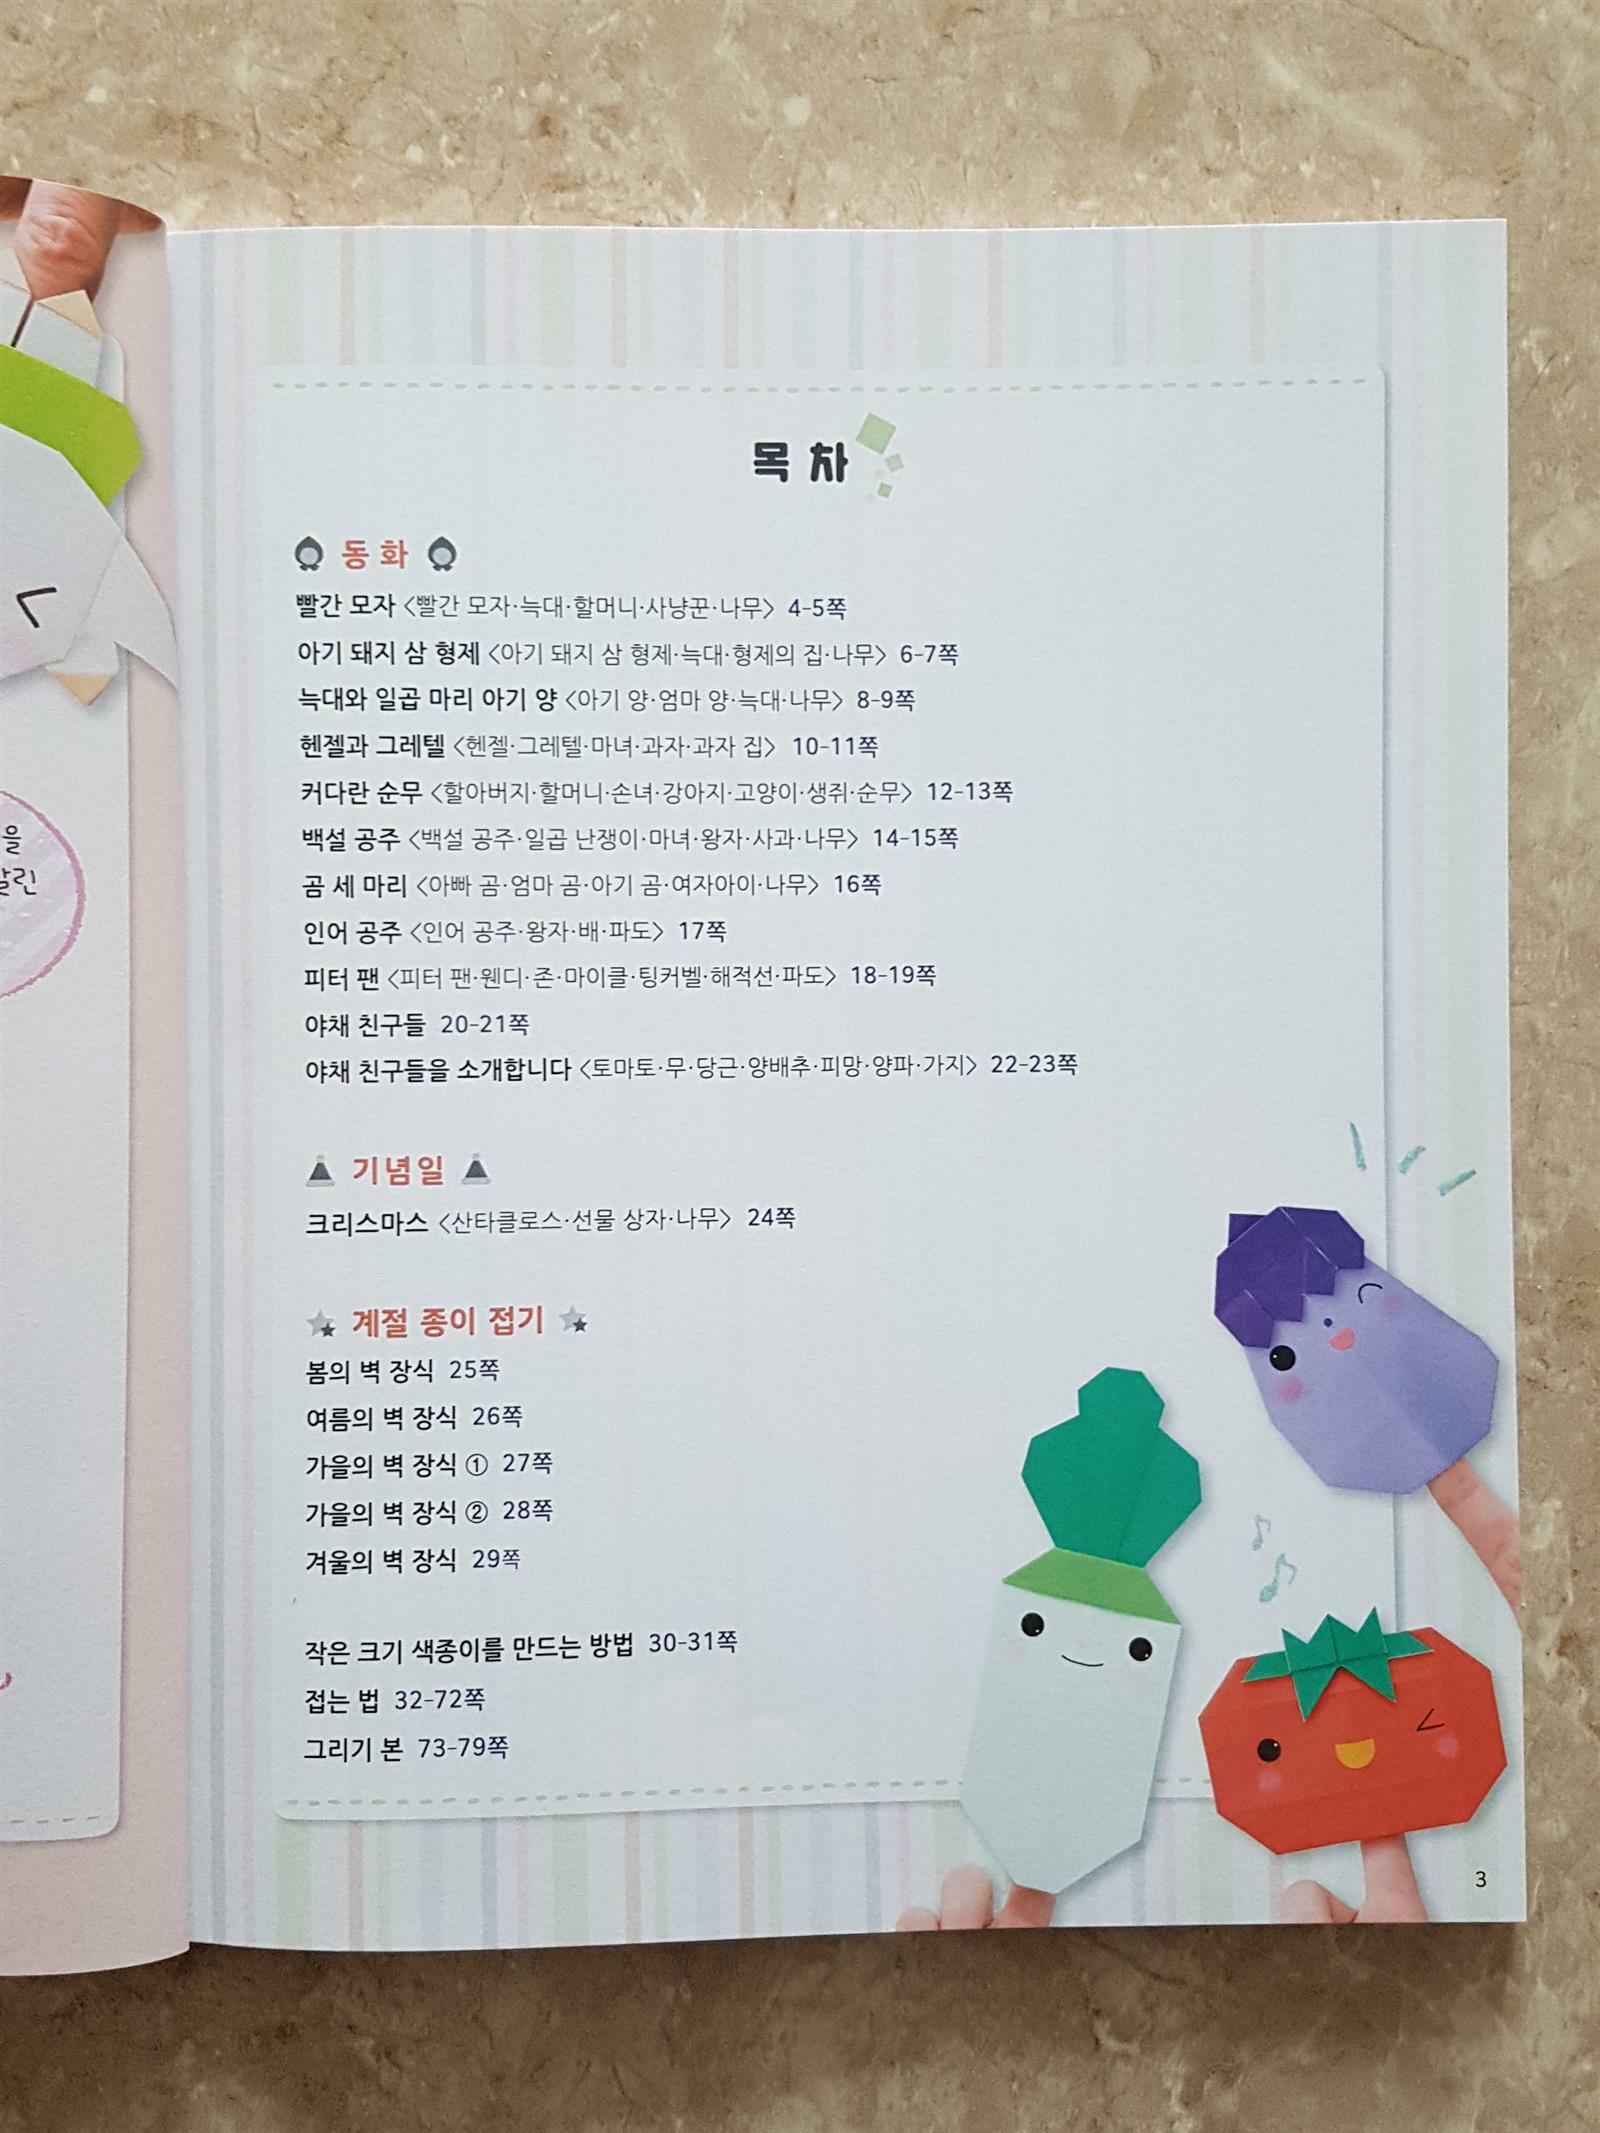 을
목차
동화
빨간 모자 〈빨간 모자·늑대·할머니·사냥꾼·나무〉 4-5쪽
아기 돼지 삼 형제 〈아기 돼지 삼 형제·늑대·형제의 집·나무〉 6-7쪽
늑대와 일곱 마리 아기 양 〈아기 양·엄마 양·늑대·나무〉 8-9쪽
헨젤과 그레텔 〈헨젤·그레텔·마녀·과자·과자 집〉 10-11쪽
커다란 순무 〈할아버지·할머니·손녀·강아지·고양이·생쥐·순무〉 12-13쪽
백설 공주 〈백설 공주·일곱 난쟁이·마녀·왕자·사과·나무〉 14-15쪽
곰 세 마리 〈아빠 곰·엄마 곰·아기 곰·여자아이·나무〉 16쪽
인어 공주 〈인어 공주·왕자·배·파도〉 17쪽
피터 팬 〈피터 팬·웬디·존·마이클·팅커벨·해적선·파도〉 18-19쪽
야채 친구들 20-21쪽
야채 친구들을 소개합니다 〈토마토·무·당근·양배추·피망·양파·가지〉 22-23쪽
기념일
크리스마스 〈산타클로스·선물 상자·나무〉 24쪽
계절 종이 접기
봄의 벽 장식 25쪽
여름의 벽 장식 26쪽
가을의 벽 장식 ① 27쪽
가을의 벽 장식 ② 28쪽
겨울의 벽 장식 29쪽
작은 크기 색종이를 만드는 방법 30-31쪽
접는 법 32-72쪽
그리기 본 73-79쪽
3